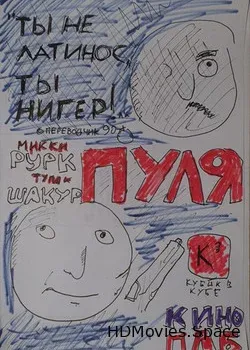 "ТЫ НЕ
ЛАТИНОС,
ТЫ
НИГЕР!"
© ПЕРЕВОДЧИК 90Х
МИККИ
РУРК
ТУПАК
ШАКУР
ПУЛЯ
К³
КУБИК В
КУБЕ
КИНО
ПАБ
HDMovies.Space